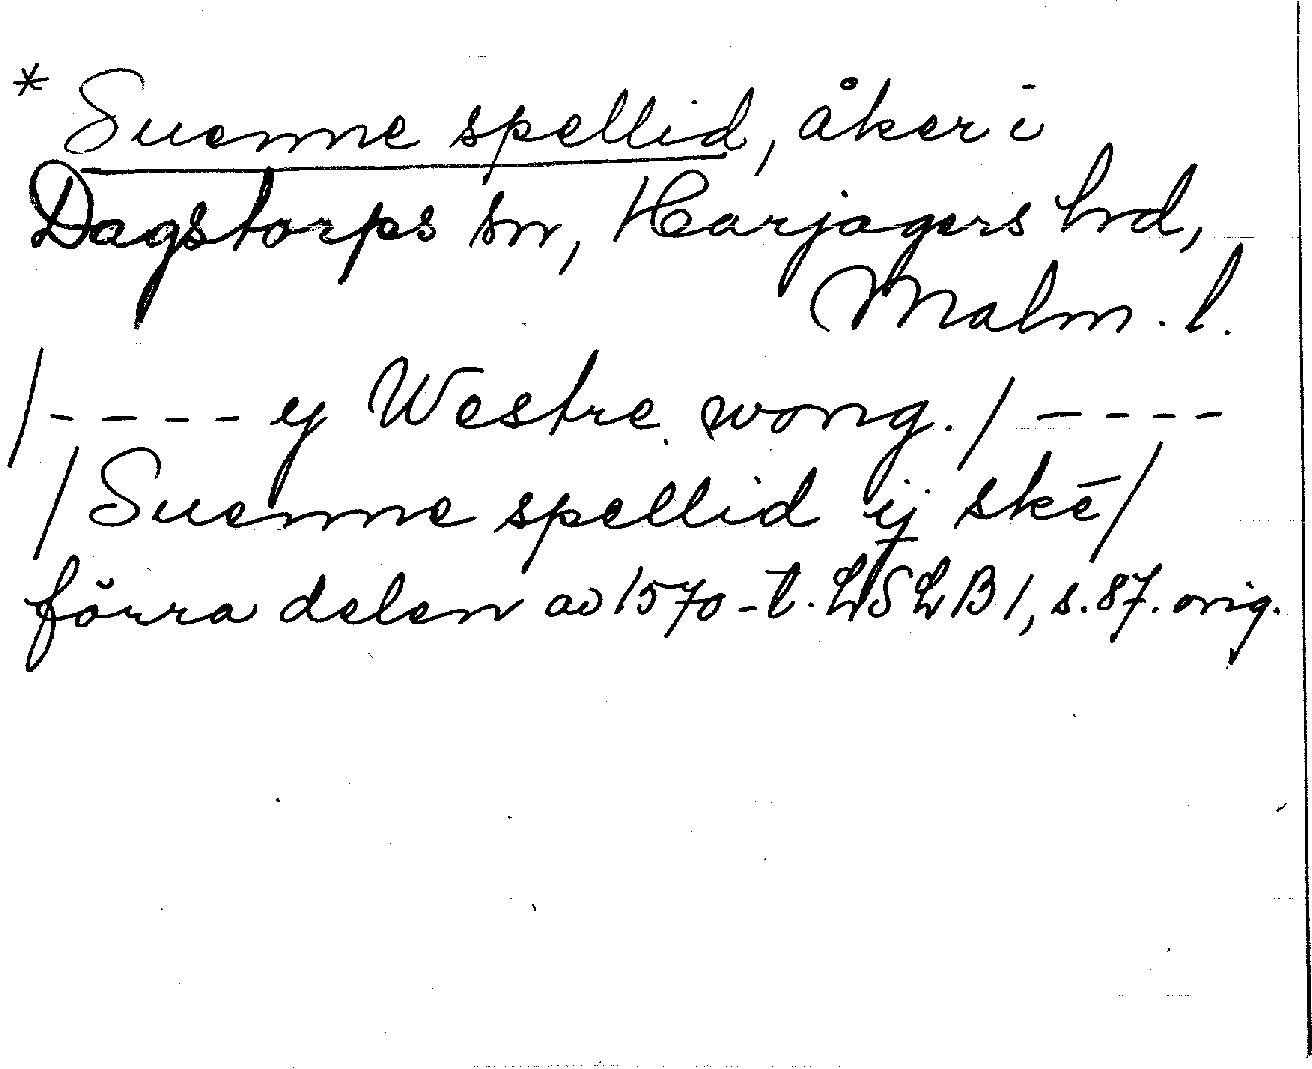 * Suenne spellid, åker i
Dagstorps sn, Harjagers hrd,
Malm. l.
/ - - - - y Westre wong. / - - - -
/ Suenne spellid ij skē /
förra delen av 1570-t. LSLB 1, s. 87. orig.